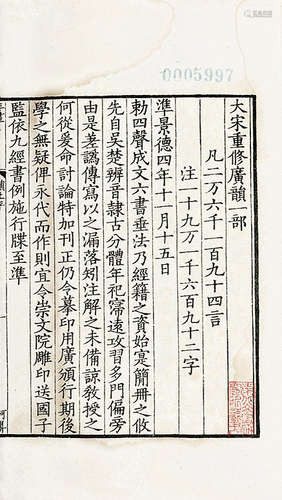 0005997
大宋重修廣韻一部
凡二万六千一百九十四言
注一十九万一千六百九十二字
準景德四年十一月十五日
勑四聲成文六書垂法乃經籍之資始寔簡冊之攸
先自吳楚辨音隸古分體年祀寖遠攻習多門偏旁
由是差譌傳寫以之漏落矧注解之未備諒教授之
何從爰命討論特加刊正仍令摹印用廣頒行期後
學之無疑俾永代而作則宜令崇文院雕印送國子
監依九經書例施行牒至準